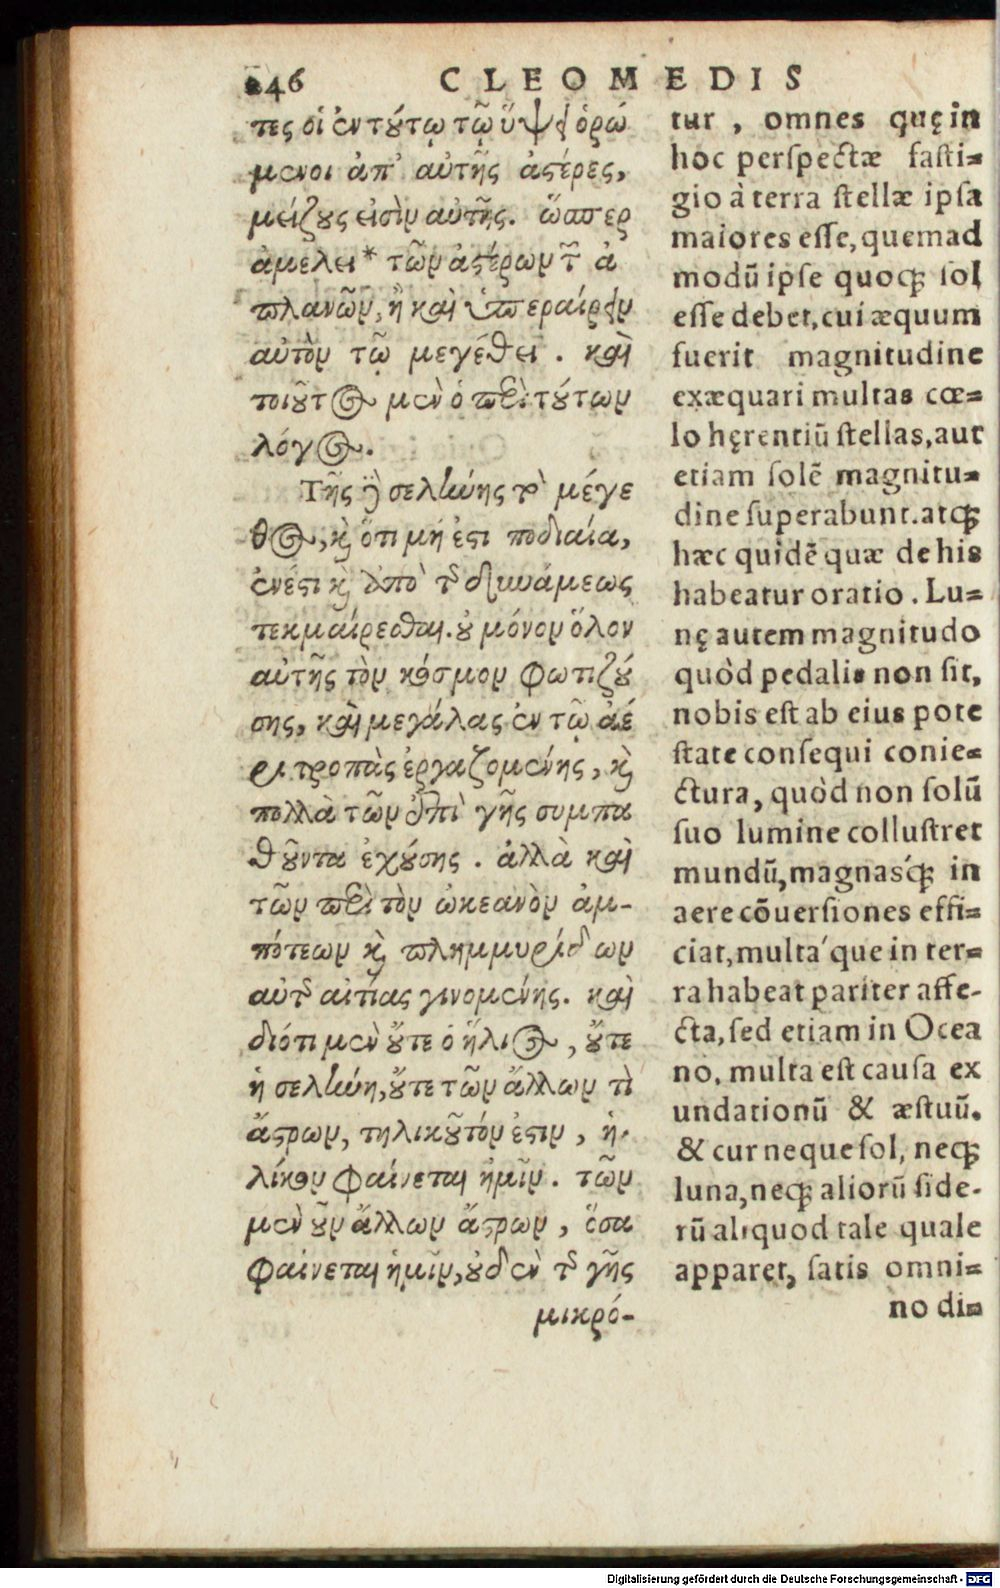 246 CLEOMEDIS
τες οἱ ἐν τούτῳ τῷ ὕψει ὁρώ
μενοι ἀπ' αὐτῆς ἀστέρες,
μείζους εἰσὶν αὐτῆς. ὥσπερ
ἀμελει* τῶν ἀστέρων τῶν ἀ
πλανῶν, ἢ καὶ ὑπεραίρειν
αὐτὸν τῷ μεγέθει. καὶ
τοιοῦτος μὲν ὁ περὶ τούτων
λόγος.
Τῆς δὲ σελήνης τὸ μέγε
θος, καὶ ὅτι μή ἐστι ποδιαία,
ἔνεστι καὶ ἀπὸ τῆς δυνάμεως
τεκμαίρεσθαι. οὐ μόνον ὅλον
αὐτῆς τὸν κόσμον φωτιζού
σης, καὶ μεγάλας ἐν τῷ ἀέ
ρι τροπὰς ἐργαζομένης, καὶ
πολλὰ τῶν ἐπὶ γῆς συμπα
θοῦντα ἐχούσης. ἀλλὰ καὶ
τῶν περὶ τὸν ὠκεανὸν ἀμ-
πότεων καὶ πλημμυρίδων
αὐτῆς αἰτίας γινομένης. καὶ
διότι μὲν οὔτε ὁ ἥλιος, οὔτε
ἡ σελήνη, οὔτε τῶν ἄλλων τὶ
ἄστρων, τηλικοῦτόν ἐστιν, ἡ-
λίκον φαίνεται ἡμῖν. τῶν
μὲν οὖν ἄλλων ἄστρων, ὅσα
φαίνεται ἡμῖν, οὐδὲν τῆς γῆς
μικρό-
tur, omnes quę in
hoc perspectæ fasti=
gio à terra stellæ ipsa
maiores esse, quemad
modũ ipse quoq; sol
esse debet, cui æquum
fuerit magnitudine
exæquari multas cœ=
lo hęrentiũ stellas, aut
etiam solẽ magnitu=
dine superabunt. atq;
hæc quidẽ quæ de his
habeatur oratio. Lu=
nę autem magnitudo
quòd pedalis non sit,
nobis est ab eius pote
state consequi conie=
ctura, quòd non solũ
suo lumine collustret
mundũ, magnas'q; in
aere cõuersiones effi=
ciat, multa'que in ter=
ra habeat pariter affe-
cta, sed etiam in Ocea
no, multa est causa ex
undationũ & æstuũ.
& cur neque sol, neq;
luna, neq; aliorũ side-
rũ aliquod tale quale
apparet, satis omni=
no di=
Digitalisierung gefördert durch die Deutsche Forschungsgemeinschaft - DFG